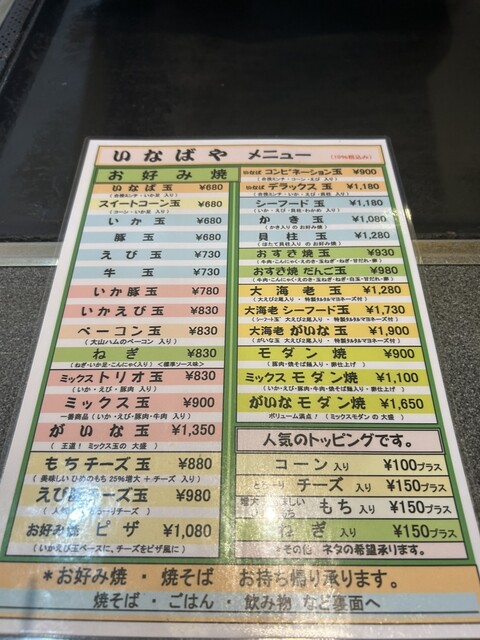 いなばや メニュー (10%税込み)
お好み焼
いなば玉 ¥680
(合挽ミンチ・いか天 入り)
スイートコーン玉 ¥680
(コーン・いか天 入り)
いか玉 ¥680
豚玉 ¥680
えび玉 ¥730
牛玉 ¥730
いか豚玉 ¥780
いかえび玉 ¥830
ベーコン玉 ¥830
(大山ハムのベーコン 入り)
ねぎ ¥830
(ねぎ・いか足・こんにゃく入り) <標準ソース味>
ミックストリオ玉 ¥830
(いか・えび・豚肉 入り)
ミックス玉 ¥900
一番商品 (いか・えび・豚肉・牛肉 入り)
がいな玉 ¥1,350
(王道! ミックス玉の大盛)
もちチーズ玉 ¥880
(美味しいひめのもち25%増大+チーズ入り)
えび チーズ玉 ¥980
お好み焼 ピザ ¥1,080
(いかえび玉ベースに、チーズをピザ風に)
いなば コンビネーション玉 ¥900
(合挽ミンチ・コーン・えび 入り)
いなば デラックス玉 ¥1,180
シーフード玉 ¥1,180
(いか・えび・貝柱・わかめ 入り)
かき玉 ¥1,080
(かき入りのお好み焼)
貝柱玉 ¥1,280
(ほたて貝柱入りのお好み焼)
おすき焼玉 ¥930
(牛肉・こんにゃく・えのき・玉ねぎ・ねぎ・甘だれ・卵)
おすき焼だんご玉 ¥980
(牛肉・こんにゃく・えのき・玉ねぎ・ねぎ・白玉・甘だれ・卵)
大海老玉 ¥1,280
(大えび2尾入り・特製タルタルマヨネーズ付)
大海老シーフード玉 ¥1,730
(シーフード玉 大えび2尾入り・特製タルタルマヨネーズ付)
大海老がいな玉 ¥1,900
(がいな玉 大えび2尾入り・特製タルタルマヨネーズ付)
モダン焼 ¥900
(豚肉・焼そば麺入り・卵仕上げ)
ミックスモダン焼 ¥1,100
(いか・えび・豚肉・牛肉・焼そば麺入り・卵仕上げ)
がいなモダン焼 ¥1,650
ボリューム満点! (ミックスモダンの大盛)
人気のトッピングです。
コーン入り ¥100プラス
チーズ入り ¥150プラス
もち入り ¥150プラス
ねぎ入り ¥150プラス
*その他 ネタの希望承ります。
*お好み焼・焼そば お持ち帰り承ります。
焼そば・ごはん・飲み物 など裏面へ